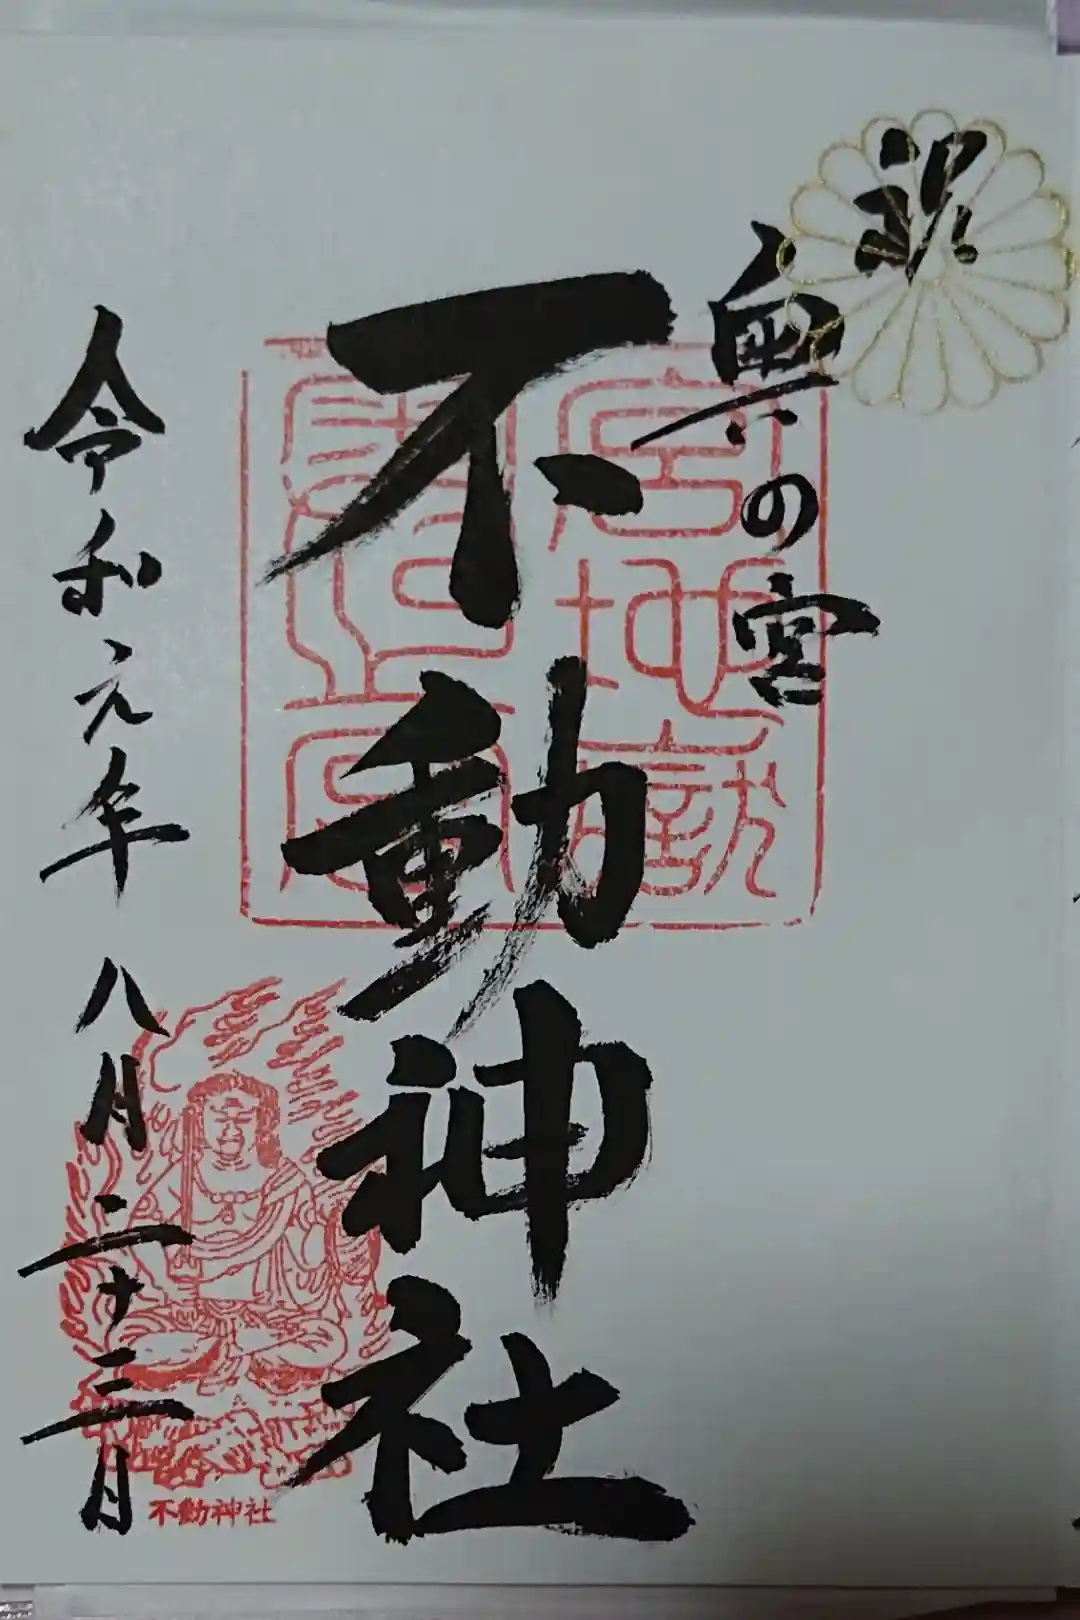 祝
奥の宮
不動神社
令和元年八月二十三日
不動神社